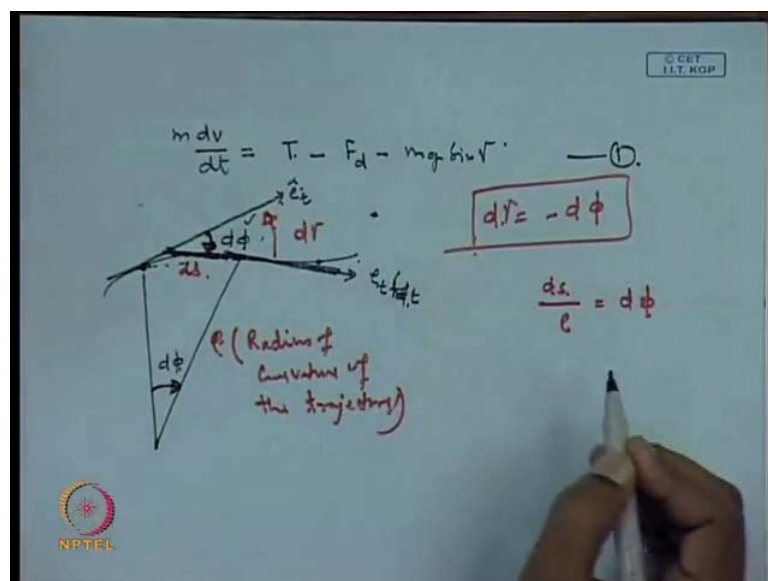 © CET
I.I.T. KGP
m dv/dt = T - Fd - mg Sin γ —①.
êt
dγ = - dφ
dφ
dγ
ds.
d.s./ρ = dφ
dφ
ρ (Radius of
Curvature of
the trajectory)
NPTEL